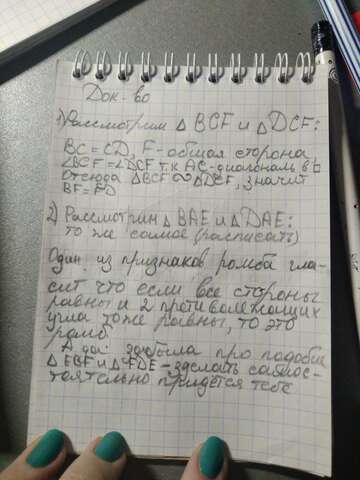 Док-во
1) Рассмотрим △ BCF и △DCF:
BC = CD, F-общая сторона
∠BCF = ∠DCF т.к AC-диагональ в
Отсюда △BCF ∞ △DCF, значит
BF = FD
2) Рассмотрим △ BAE и △ DAE:
то же самое (расписать)
Один из признаков ромба гла-
сит что если все стороны
равны и 2 противолежащих
угла тоже равны, то это
ромб.
А да: забыла про подобие
△ EBF и △ FDE - сделать самос-
тоятельно придётся тебе